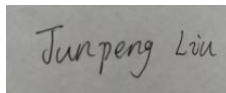 Junpeng Liu